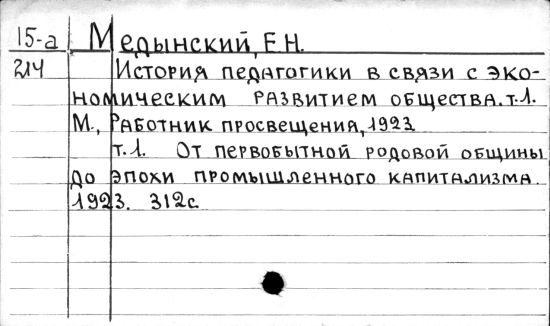 15-а Медынский, Е.Н.
214 История педагогики в связи с эко-
номическим развитием общества. т.1.
М., Работник просвещения, 1923
т.1. От первобытной родовой общины
до эпохи промышленного капитализма
1923. 312с.